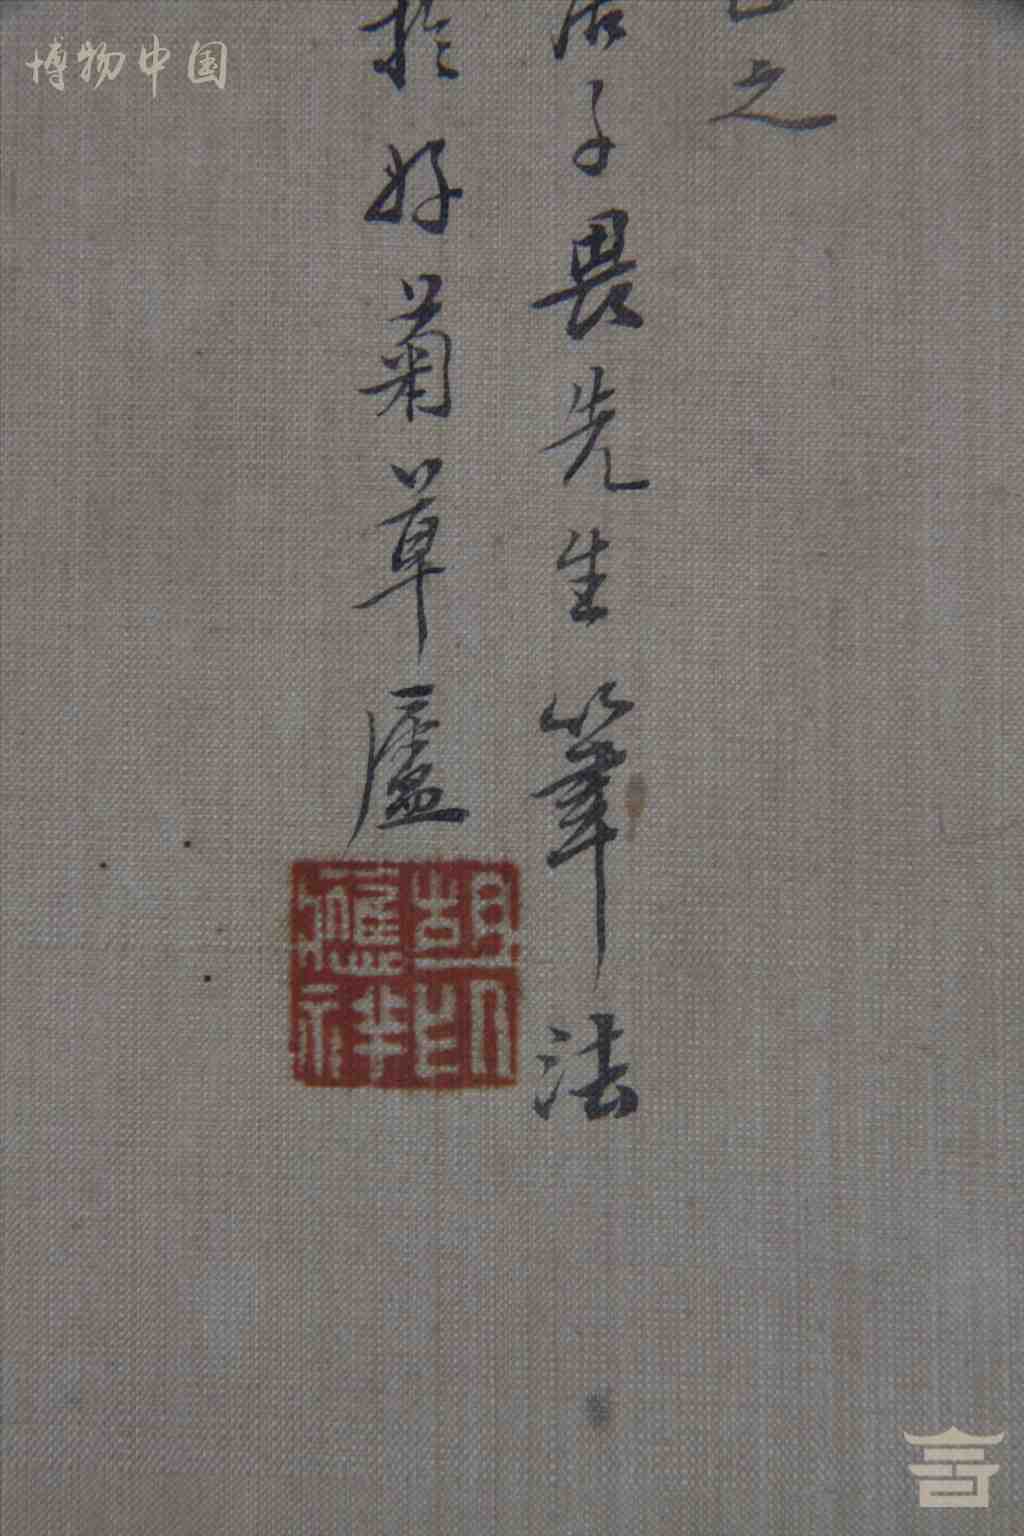 博物中国
之
子畏先生筆法
於好菊草廬
胡應祥印